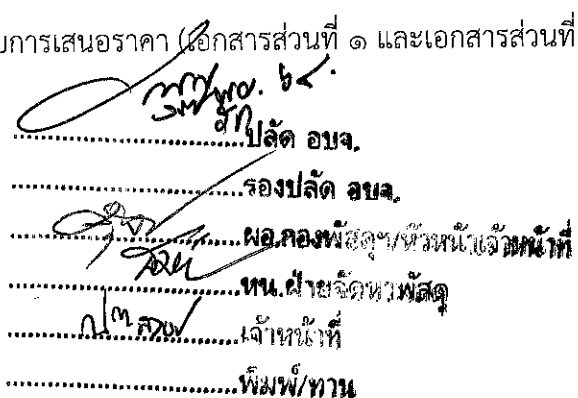 บการเสนอราคา (เอกสารส่วนที่ ๑ และเอกสารส่วนที่
พย. ๖๔.
ปลัด อบจ.
รองปลัด อบจ.
ผอ.กองพัสดุฯ/หัวหน้าเจ้าหน้าที่
หน.ฝ่ายจัดหาพัสดุ
เจ้าหน้าที่
พิมพ์/ทาน